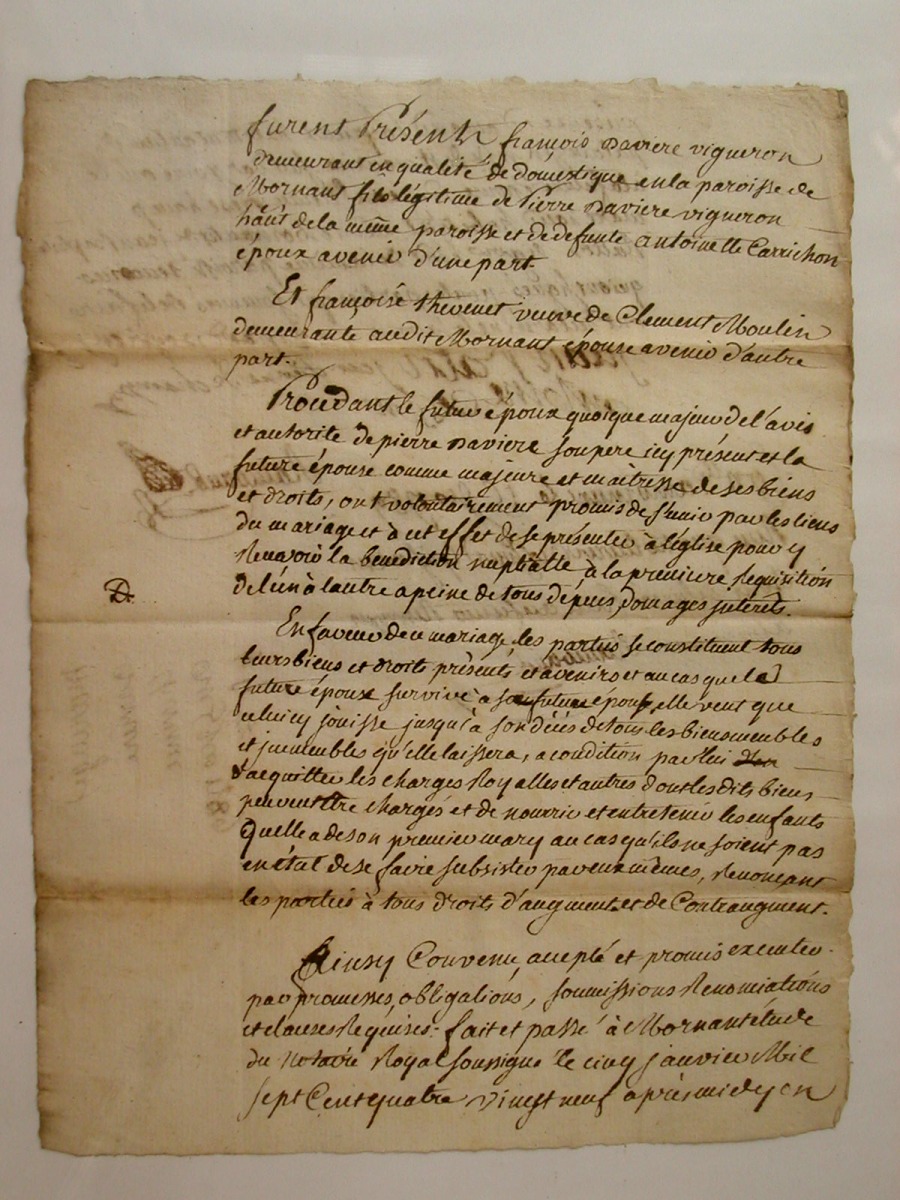 furent Présents françois Daviere vigneron
demeurant en qualité de doméstique en la paroisse de
Mornant fils légitime de Pierre Daviere vigneron
hânt de la même paroisse et de defunte Antoinette Carrichon
époux avenir d'une part.
Et françoise thevenet veuve de Clement Moulin
demeurante audit Mornant épouse avenir d'autre
part.
Procedant le futur époux quoique majeur de l'avis
et autorité de pierre Daviere son pere icy présent et la
future épouse comme majeure et maitresse de ses biens
et droits, ont volontairement promis de s'unir par les liens
du mariage et à cet effet de se présenter à l'église pour y
Recevoir la benediction nuptialle à la premiere Requisition
de l'un à lautre a peine de tous dépens, domages jnterêts.
En faveur de ce mariage les parties se constituent tous
leurs biens et droits présents et avenirs et au cas que la
future épouse survive à son futur époux, elle veut que
celuicy jouisse jusqu'à son décès de tous les biens meubles
et jmmeubles qu'elle laissera, a condition par lui
d'acquitter les charges Royalles et autres dont les dits biens
peuvent être chargés et de nourrir et entretenir les enfants
Quelle a de son premier mary au cas qu'ils ne soient pas
en état de se faire subsister par eux mêmes, Renonçant
les parties à tous droits d'augment et de Contraugment.
Ainsy Convenu, accepté et promis executer
par promesses, obligations, soumissions Renonciations
et clauses Requises. fait et passé à Mornant étude
du Notaire Royal soussigné le cinq janvier Mil
sept Cent quatre vingt neuf après midy en